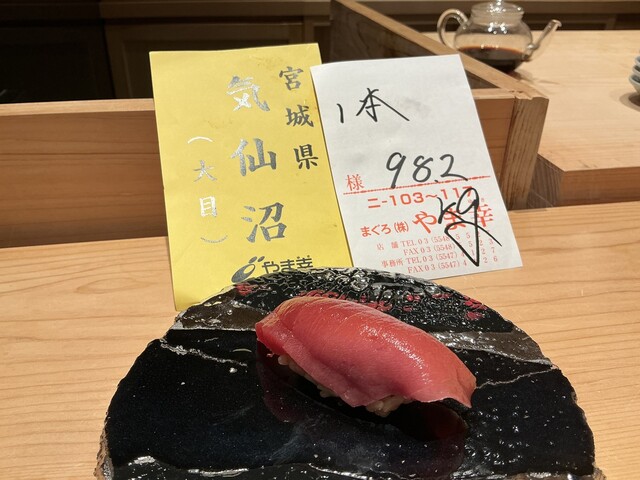 宮城県
気仙沼
(大目)
やま幸
1本
98.2
kg
様
ニ-103〜117
まぐろ(株)やま幸
店舗 TEL 03 (5548)
FAX 03 (5548)
事務所 TEL 03 (5547)
FAX 03 (5547)